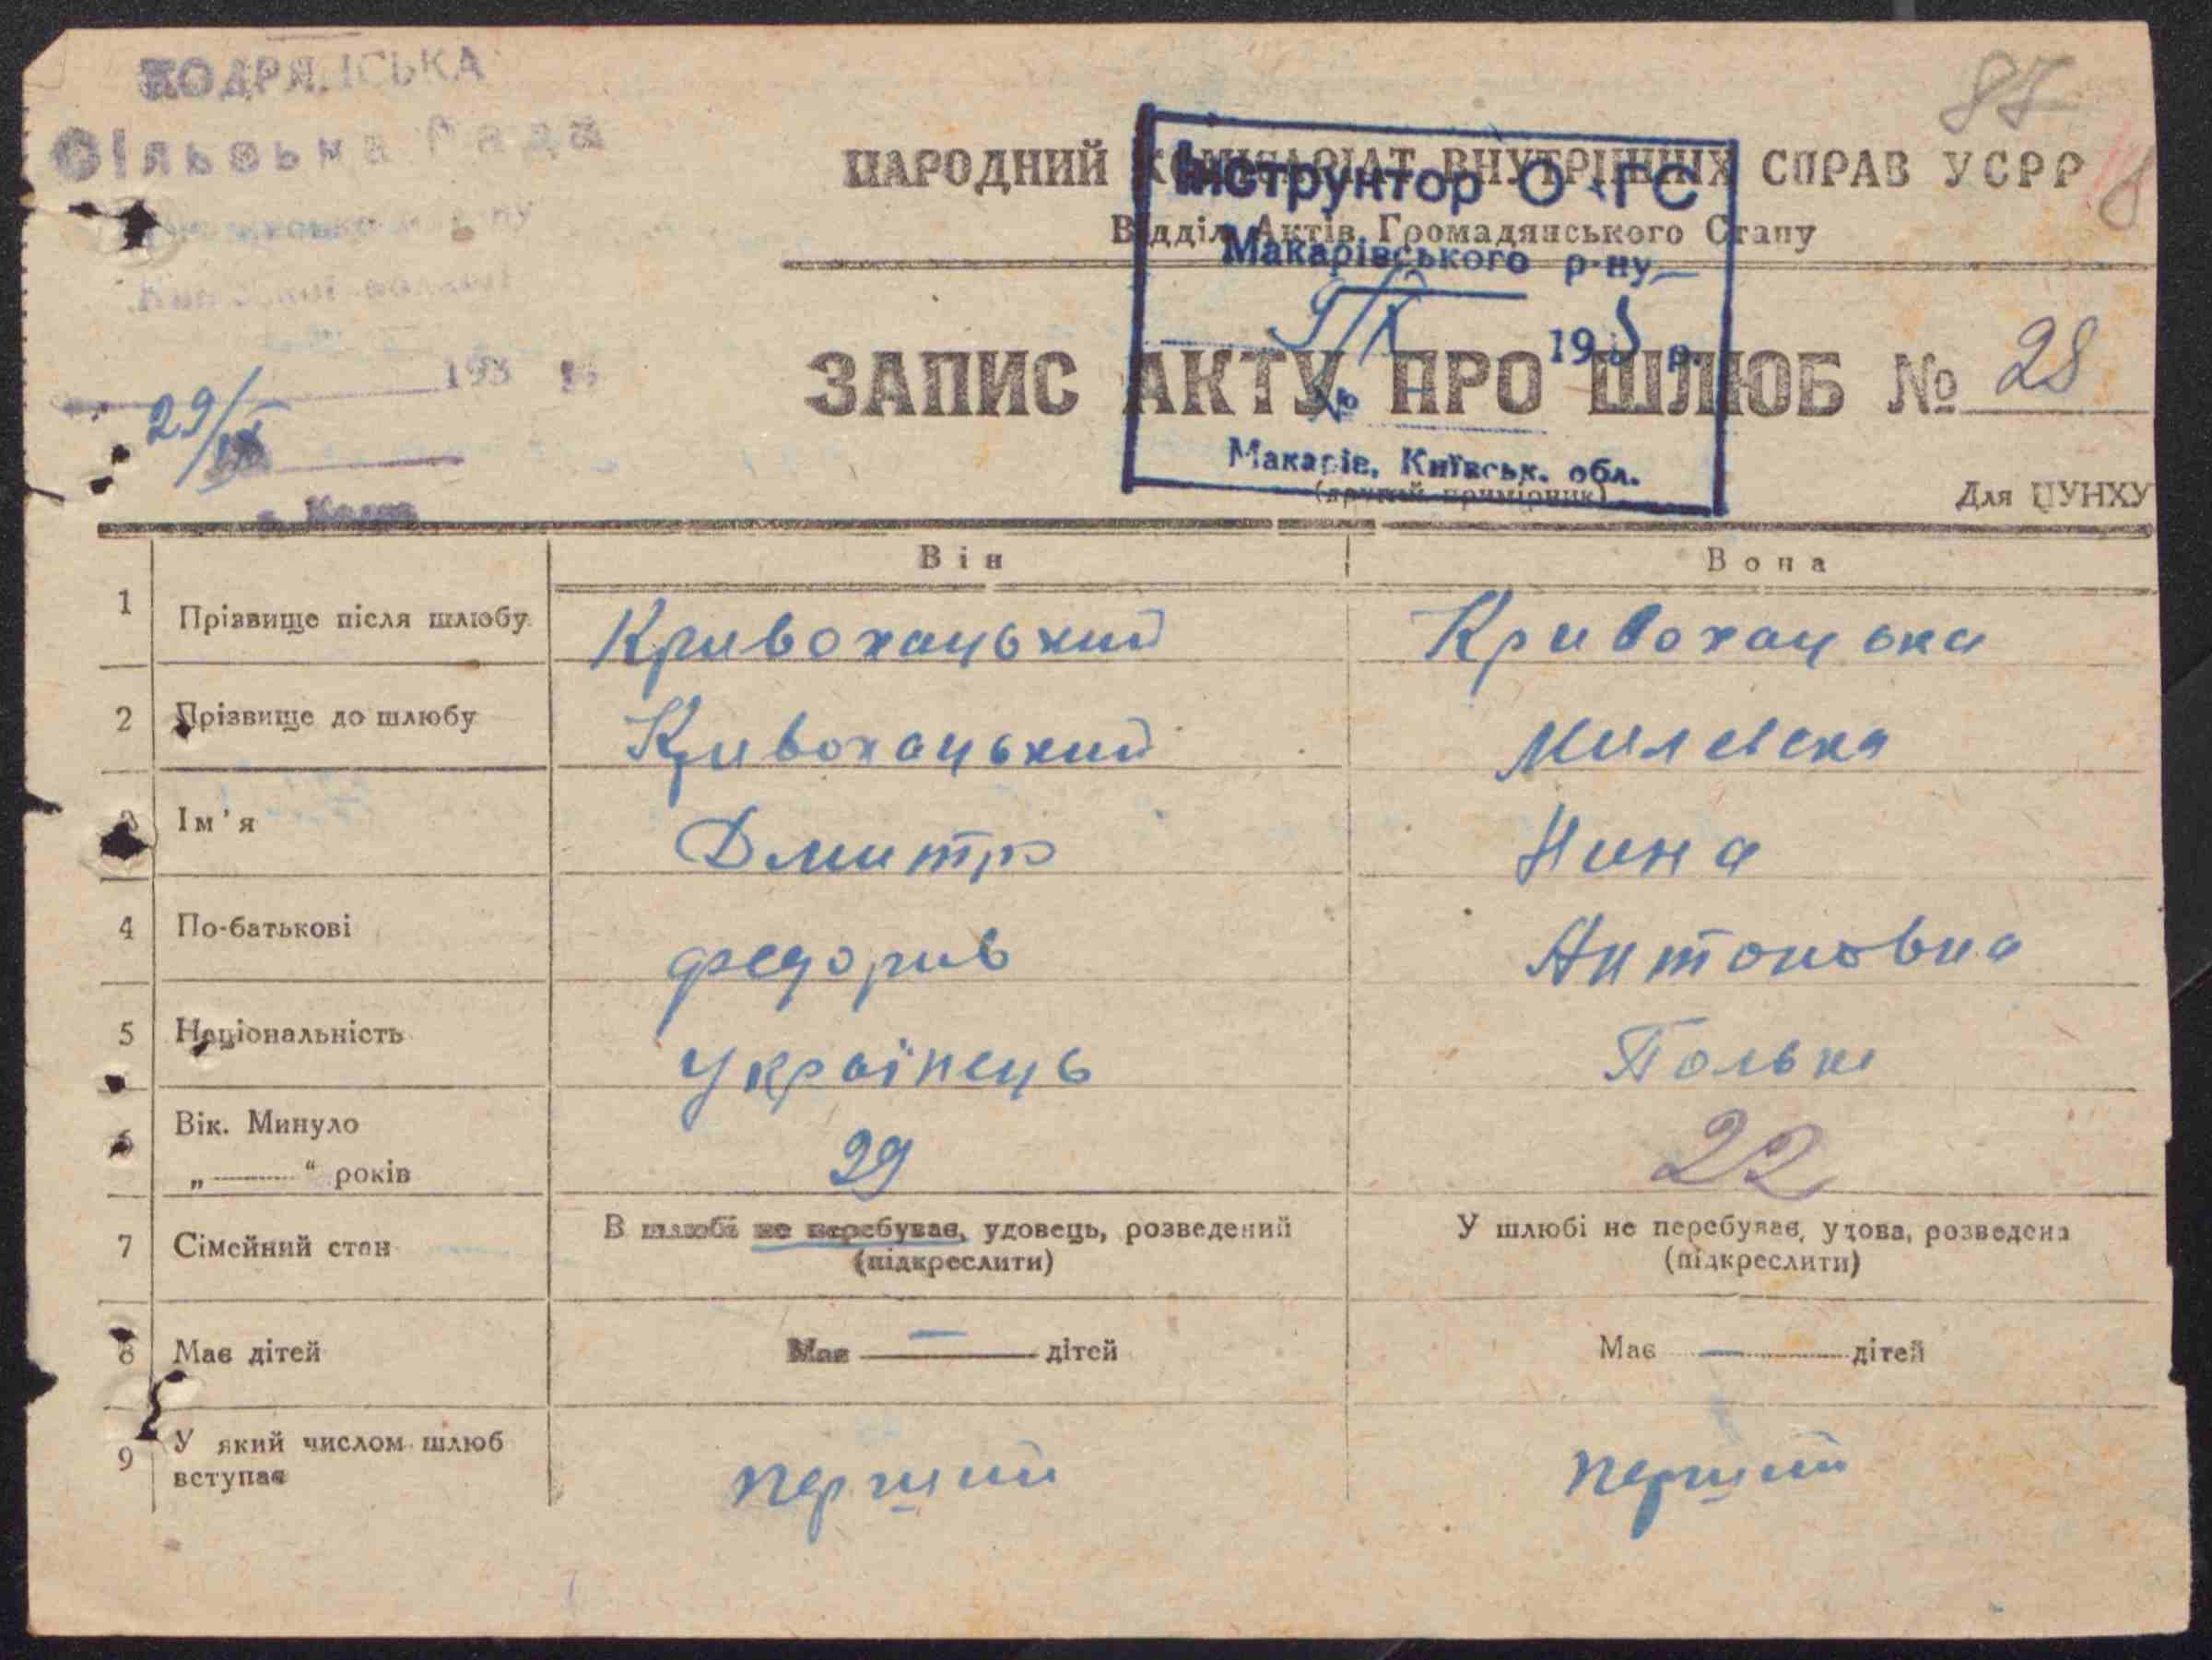 КОДРЯНСЬКА
Сільська Рада
193
29/IX
87
НАРОДНИЙ КОМІСАРІАТ ВНУТРІШНІХ СПРАВ УСРР
Відділ Актів Громадянського Стану
Інструктор О ГС
Макарівського р-ну
9/X 1935 р.
№
Макарів, Київськ. обл.
ЗАПИС АКТУ ПРО ШЛЮБ № 28
(другий примірник)
Для ЦУНХУ
Він Вона
1 Прізвище після шлюбу Кривохацький Кривохацька
2 Прізвище до шлюбу Кривохацький Милевска
Ім'я Дмитро Нина
4 По-батькові Федорив Антоновна
5 Національність Українець Полька
6 Вік. Минуло
„ “ років 29 22
7 Сімейний стан В шлюбі не перебуває, удовець, розведений У шлюбі не перебуває, удова, розведена
(підкреслити) (підкреслити)
8 Має дітей Має — дітей Має — дітей
9 У який числом шлюб
вступає перший перший